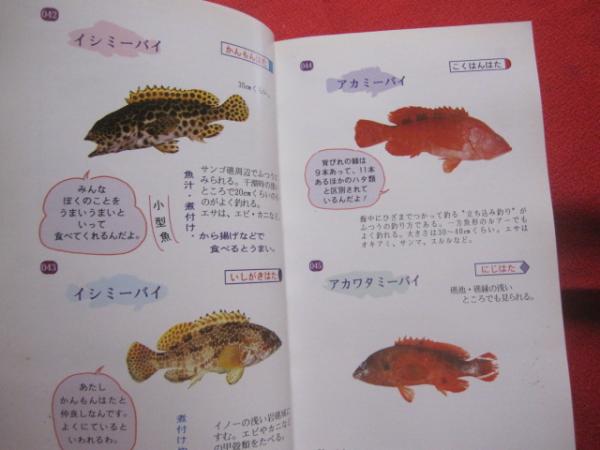 042
イシミーバイ
かんもんはた
35cmくらい。
みんな
ぼくのことを
うまいうまいと
いって
食べてくれるんだよ。
小型魚
魚汁・煮付け・
から揚げなどで
食べるとうまい。
サンゴ礁周辺でふつうに
みられる。干潮時の浅い
ところで20cmくらいのも
のがよく釣れる。
エサは、エビ・カニなど。
043
イシミーバイ
いしがきはた
あたし
かんもんはたと
仲良しなんです。
よくにていると
いわれるわ。
煮付け
イノーの浅い岩礁域に
すむ。エビやカニなど
の甲殻類をたべる。
044
アカミーバイ
こくはんはた
背びれの棘は
9本あって、11本
あるほかのハタ類
と区別されて
いるんだよ！
腹中にひざまでつかって釣る“立ち込み釣り”が
ふつうの釣り方である。一方魚形のルアーでも
よく釣れる。大きさは30〜40cmくらい。エサは
オキアミ、サンマ、スルルなど。
045
アカワタミーバイ
にじはた
礁池・礁縁の浅い
ところでも見られる。